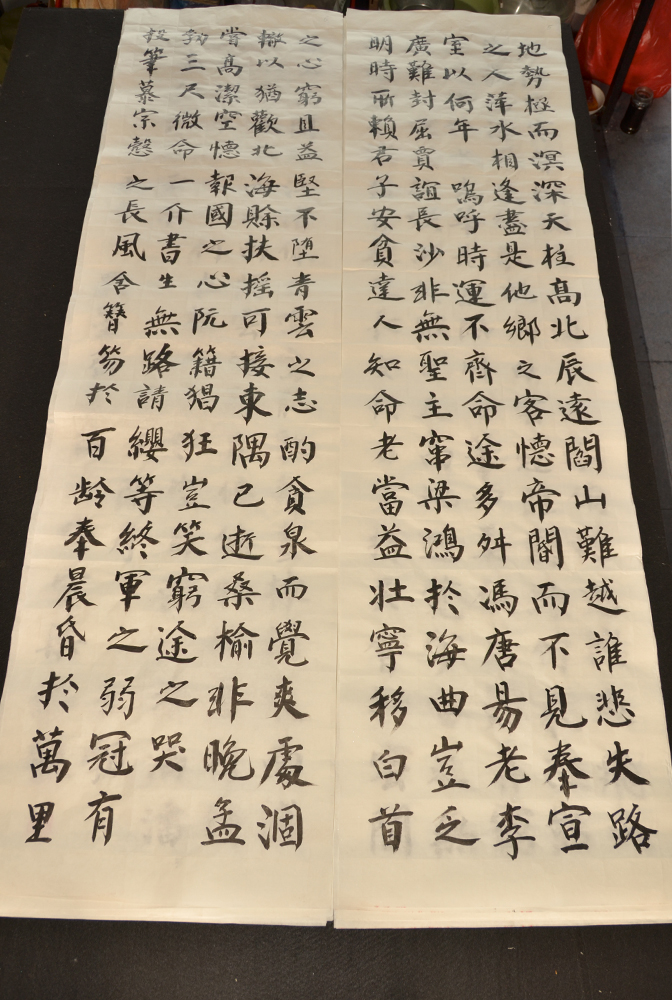 地勢極而溟深天柱高北辰遠閻山難越誰悲失路
之人萍水相逢盡是他鄉之客懷帝閽而不見奉宣
室以何年嗚呼時運不齊命途多舛馮唐易老李
廣難封屈賈誼長沙非無聖主竄梁鴻於海曲豈乏
明時所賴君子安貧達人知命老當益壯寧移白首
之心窮且益堅不墮青雲之志酌貪泉而覺爽處涸
轍以猶歡北海賒扶搖可接東隅已逝桑榆非晚孟
嘗高潔空懷報國之心阮籍猖狂豈笑窮途之哭
勃三尺微命一介書生無路請纓等終軍之弱冠有
投筆慕宗愨之長風舍簪笏於百齡奉晨昏於萬里